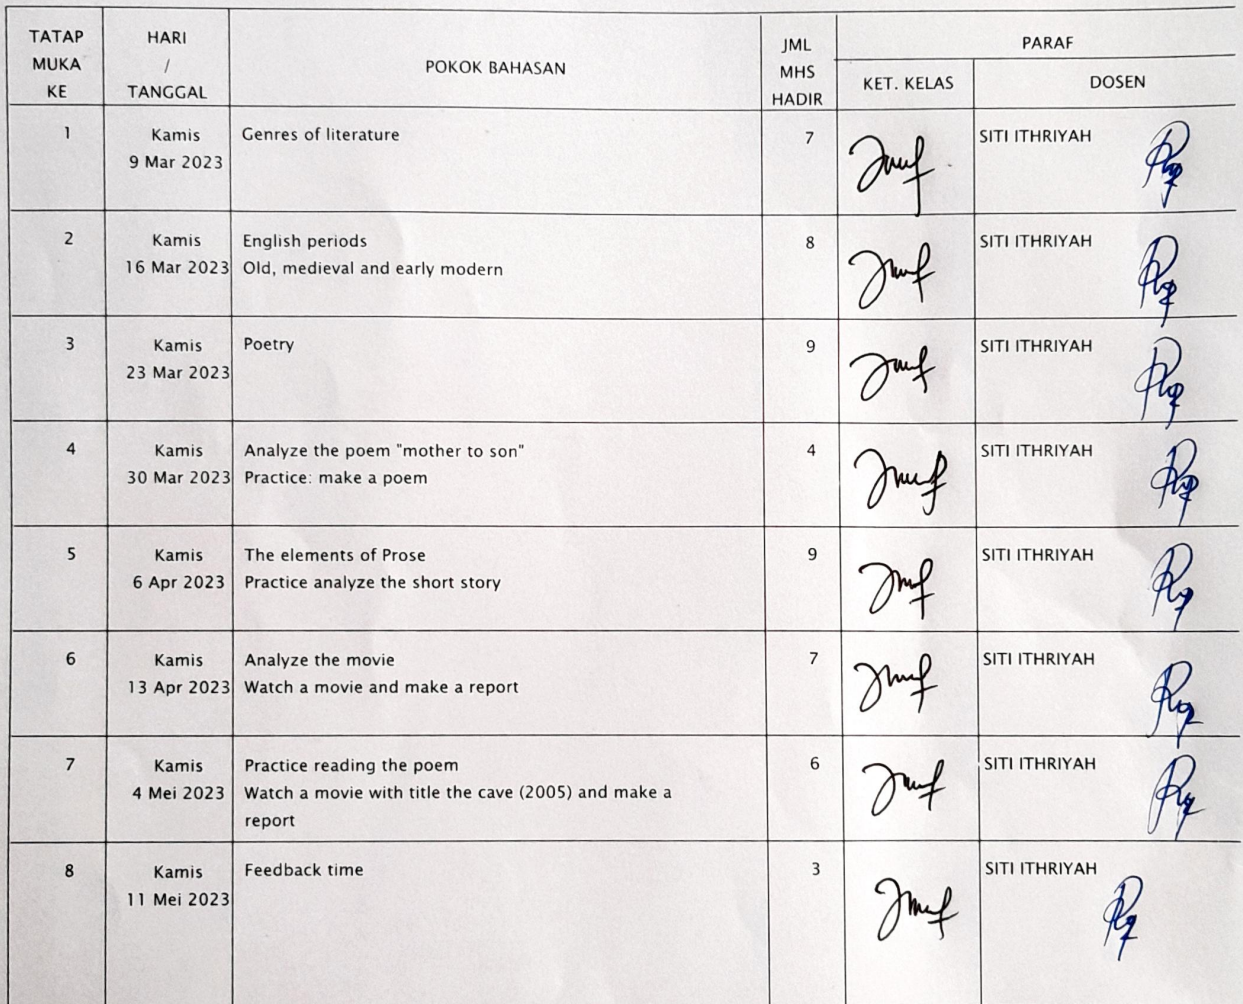 TATAP MUKA KE
HARI / TANGGAL
POKOK BAHASAN
JML MHS HADIR
PARAF
KET. KELAS
DOSEN
1
Kamis
9 Mar 2023
Genres of literature
7
SITI ITHRIYAH
2
Kamis
16 Mar 2023
English periods
Old, medieval and early modern
8
SITI ITHRIYAH
3
Kamis
23 Mar 2023
Poetry
9
SITI ITHRIYAH
4
Kamis
30 Mar 2023
Analyze the poem "mother to son"
Practice: make a poem
4
SITI ITHRIYAH
5
Kamis
6 Apr 2023
The elements of Prose
Practice analyze the short story
9
SITI ITHRIYAH
6
Kamis
13 Apr 2023
Analyze the movie
Watch a movie and make a report
7
SITI ITHRIYAH
7
Kamis
4 Mei 2023
Practice reading the poem
Watch a movie with title the cave (2005) and make a
report
6
SITI ITHRIYAH
8
Kamis
11 Mei 2023
Feedback time
3
SITI ITHRIYAH